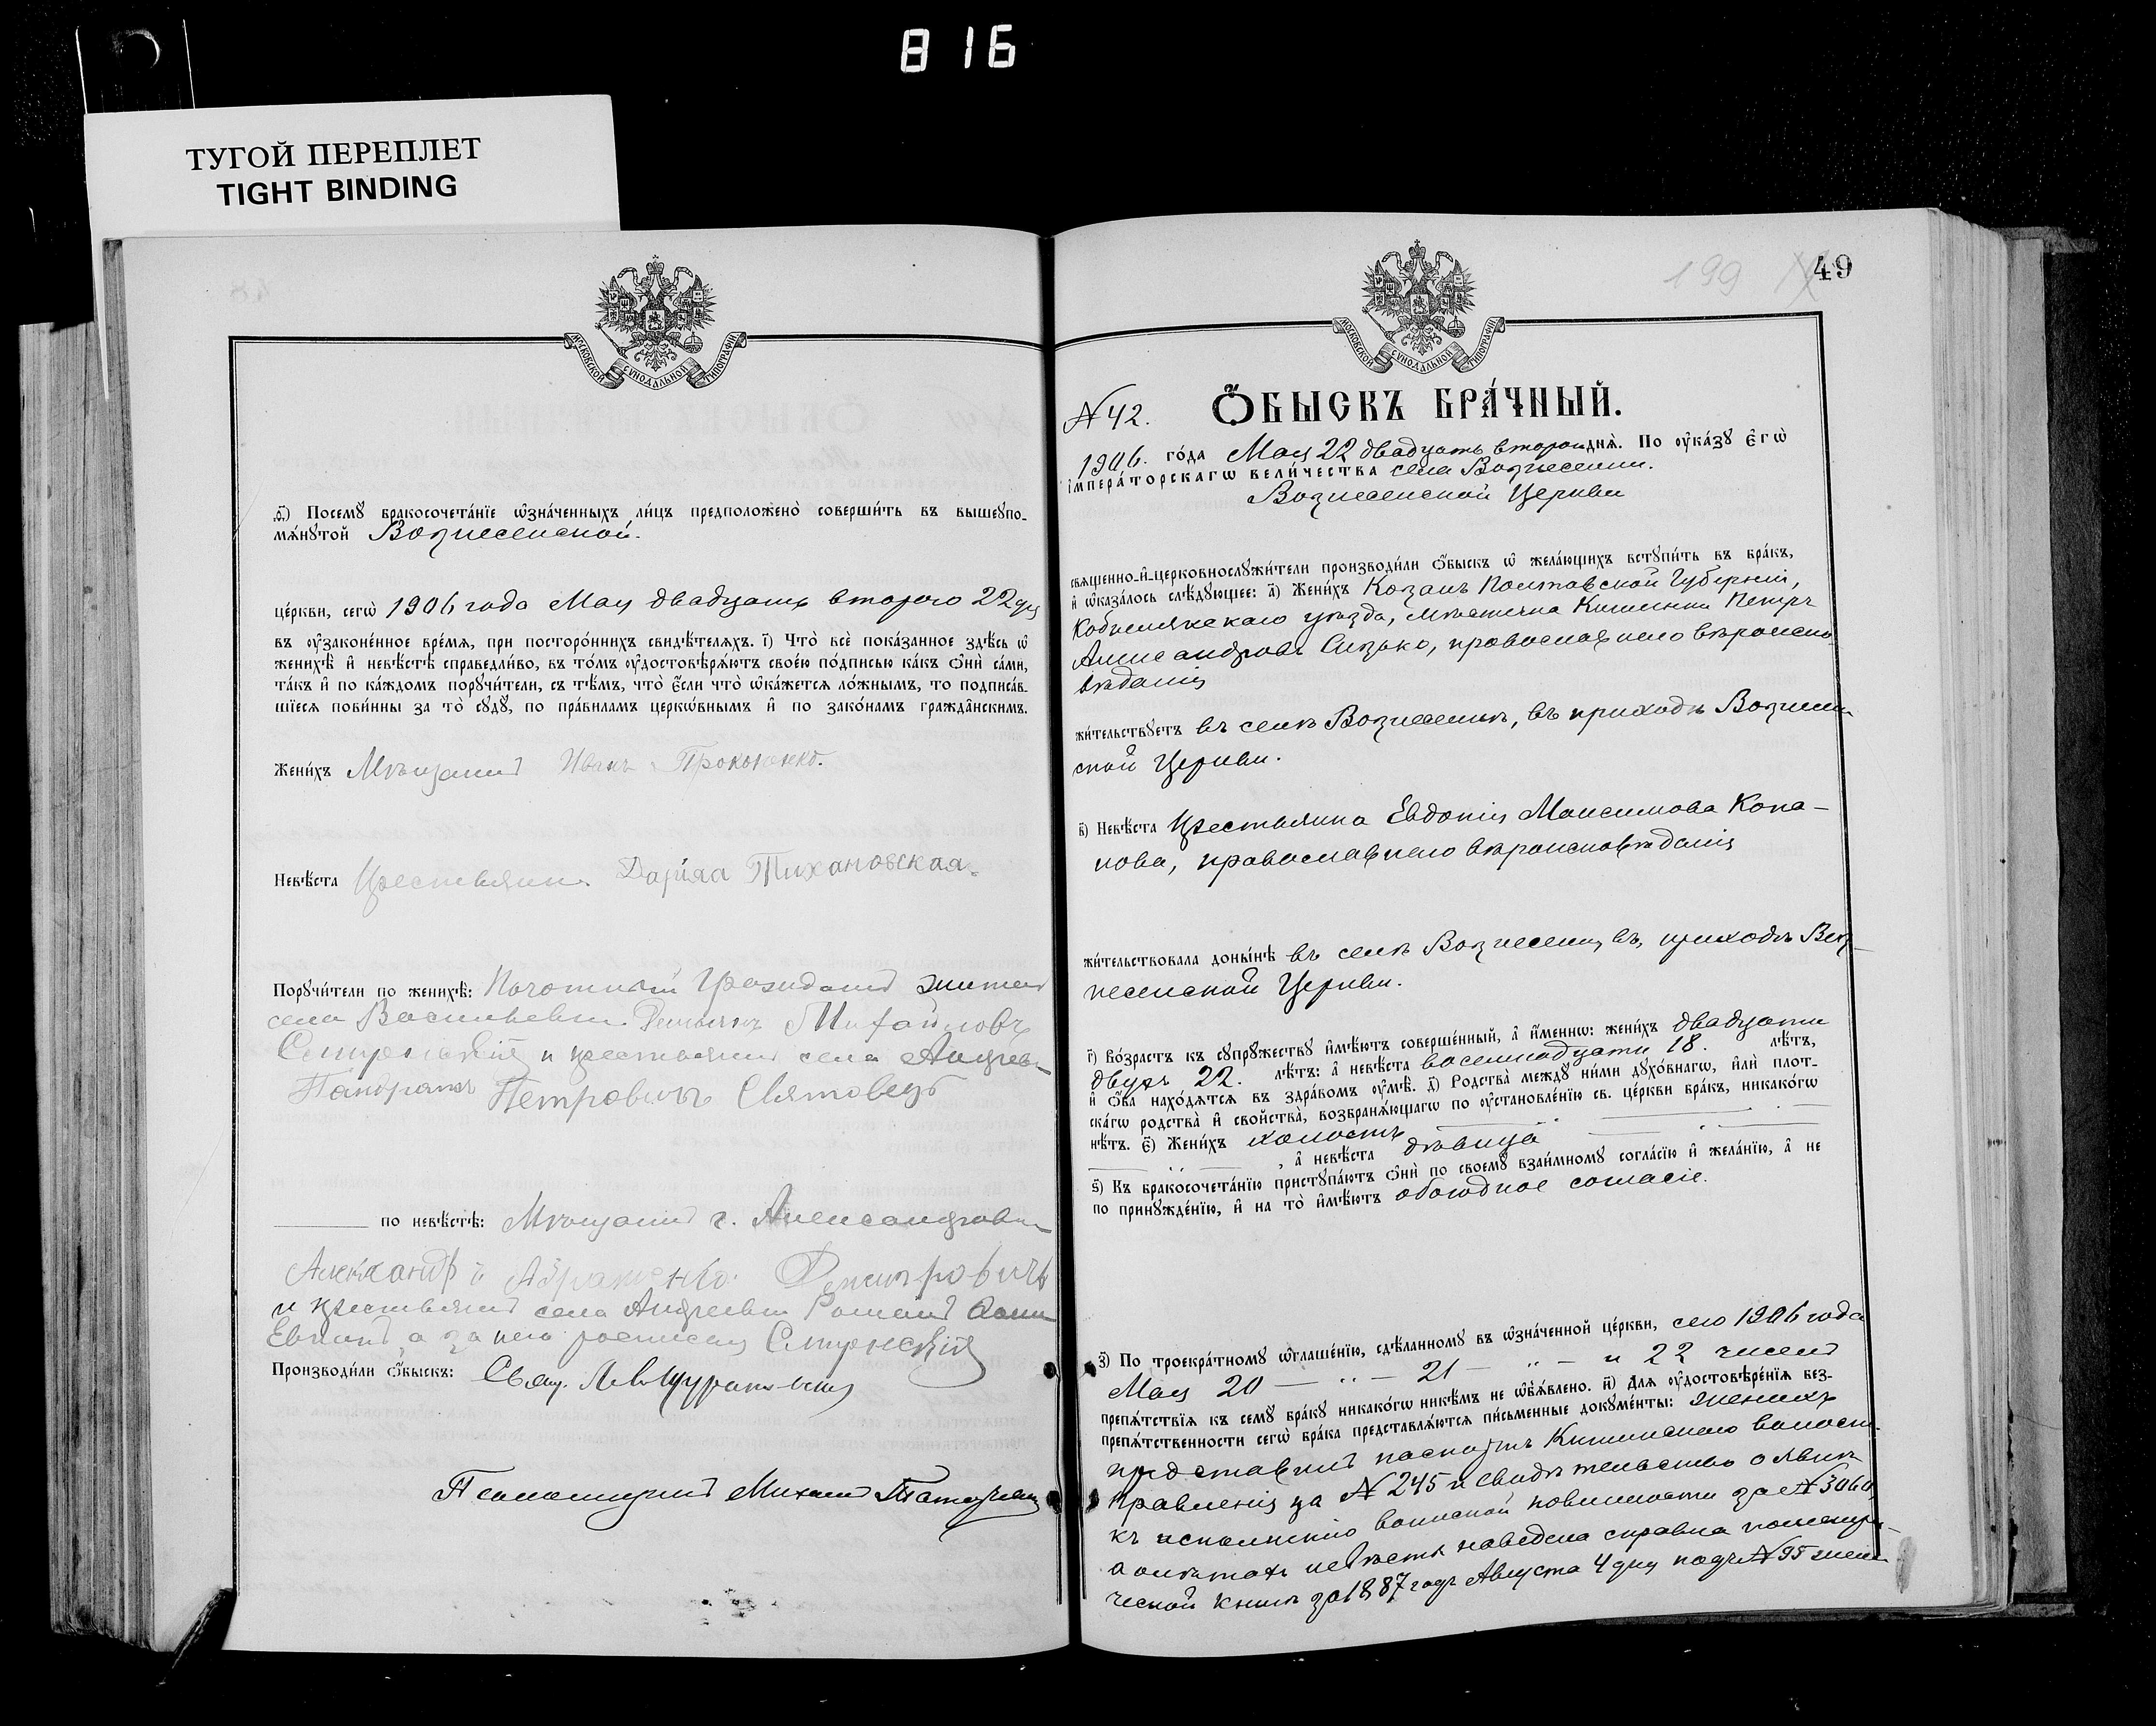 816
ТУГОЙ ПЕРЕПЛЕТ
TIGHT BINDING
МОСКОВСКОЙ СУНОДАЛЬНОЙ ТИПОГРАФІИ
ѳ҃) Посемꙋ̀ бракосочета́нїе ѡ҆зна́ченныхъ ли́цъ предположено̀ соверши́ть въ вышеꙋпо-
мѧ́нꙋтой Вознесенской.
це́ркви, сегѡ̀ 1906 года Мая двадцать второго 22 дня
въ ᲂу҆законе́нное вре́мѧ, при посторо́ннихъ свидѣ́телѧхъ. і҃) Что̀ всѐ пока́занное здѣ́сь ѡ҆
женихѣ̀ и҆ невѣ́стѣ справедли́во, въ то́мъ ᲂу҆достовѣрѧ́ютъ свое́ю по́дписью ка́къ ѻ҆нѝ са́ми,
та́къ и҆ по ка́ждомъ порꙋчи́тели, съ тѣ́мъ, что̀ є҆́сли что̀ ѡ҆ка́жетсѧ ло́жнымъ, то подписа́в-
шїесѧ пови́нны за то̀ сꙋдꙋ̀, по пра́виламъ церкѡ́внымъ и҆ по зако́намъ гражда̂нскимъ.
Жени́хъ Мѣщанин Иванъ Прокопенко.
Невѣ́ста Крестьянк. Дарiяа Тихановская.
Порꙋчи́тели по женихѣ̀: Почотный Гражданин жител
села Васильевки Михайловъ
и крестьянин села Андреев-
Петровичъ Святовецъ
по невѣ́стѣ: Мѣщанин г. Александровки
Александръ Абраменко Дмитровичъ
и крестьянин села Андреевки Роман
а за него росписался
Производи́ли ѻ҆́быскъ: Свящ.
Псаломщикъ Михаил
199 49
МОСКОВСКОЙ СУНОДАЛЬНОЙ ТИПОГРАФІИ
№ 42. Ѻ҆́БЫСКЪ БРА́ЧНЫЙ.
1906. го́да Мая 22 двадцать второ днѧ̀. По ᲂу҆ка́зꙋ є҆гѡ̀
і҆мпера́торскагѡ вели́чества села Вознесенки.
Вознесенской Церкви
свѧще́нно-и҆-церковнослꙋжи́тели производи́ли ѻ҆́быскъ ѡ҆ жела́ющихъ встꙋпи́ть въ бра́къ,
и҆ ѡ҆каза́лось слѣ́дꙋющее: а҃) Жени́хъ Козакъ Полтавской Губерніи,
Кобелякскаго уѣзда, мѣстечка Кишенки Петръ
Александровъ Сизько, православнаго вѣроиспо
вѣданія
жи́тельствꙋетъ въ селѣ Вознесенкѣ, въ приходѣ Вознесен
ской Церкви.
в҃) Невѣ́ста Крестьянка Евдокія Максимова Копа-
нова, православнаго вѣроисповѣданія
жи́тельствовала доны́нѣ въ селѣ Вознесенкѣ, приходѣ Воз-
несенской Церкви.
г҃) Во́зрастъ къ сꙋпрꙋ́жествꙋ и҆мѣ́ютъ соверше́нный, а҆ и҆́меннѡ: жени́хъ двадцати
двухъ 22. лѣ́тъ: а҆ невѣ́ста восемнадцати 18. лѣ́тъ,
и҆ ѻ҆́ба нахо́дѧтсѧ въ здра́вомъ ᲂу҆мѣ̀. д҃) Родства̀ междꙋ ни́ми дꙋхо́внагѡ, и҆лѝ плот-
ска́гѡ родства̀ и҆ сво́йства̀, возбранѧ́ющагѡ по ᲂу҆становле́нїю св. це́ркви бра́къ, никако́гѡ
нѣ́тъ. є҃) Жени́хъ холостъ
, а҆ невѣ́ста дѣвица
ѕ҃) Къ бракосочета́нїю пристꙋпа́ютъ ѻ҆нѝ по своемꙋ̀ взаи́мномꙋ согла́сїю и҆ жела́нїю, а҆ не
по принꙋжде́нїю, и҆ на то̀ и҆мѣ́ютъ обоюдное согласіе.
з҃) По троекра́тномꙋ ѡ҆глаше́нїю, сдѣ́ланномꙋ въ ѡ҆зна́ченной це́ркви, сего 1906 года
Мая 20 — " — 21 — " — и 22 чисел
препѧ́тствїѧ къ семꙋ̀ бра́кꙋ никако́гѡ никѣ́мъ не ѡ҆б̾ѧ́влено. и҃) Длѧ ᲂу҆достовѣре́нїѧ без-
препѧ́тственности сегѡ̀ бра́ка представлѧ́ютсѧ пи́сьменные докꙋме́нты: женихъ
представил паспортъ Кишинскаго волост.
правленія за № 245 и свидѣтельство о явкѣ
къ исполненію воинской повинности за № 3060,
а о лѣтахъ невѣсты наведена справка по метри-
ческой книгѣ за 1887 годъ Августа 4 дня подъ № 95 жен.